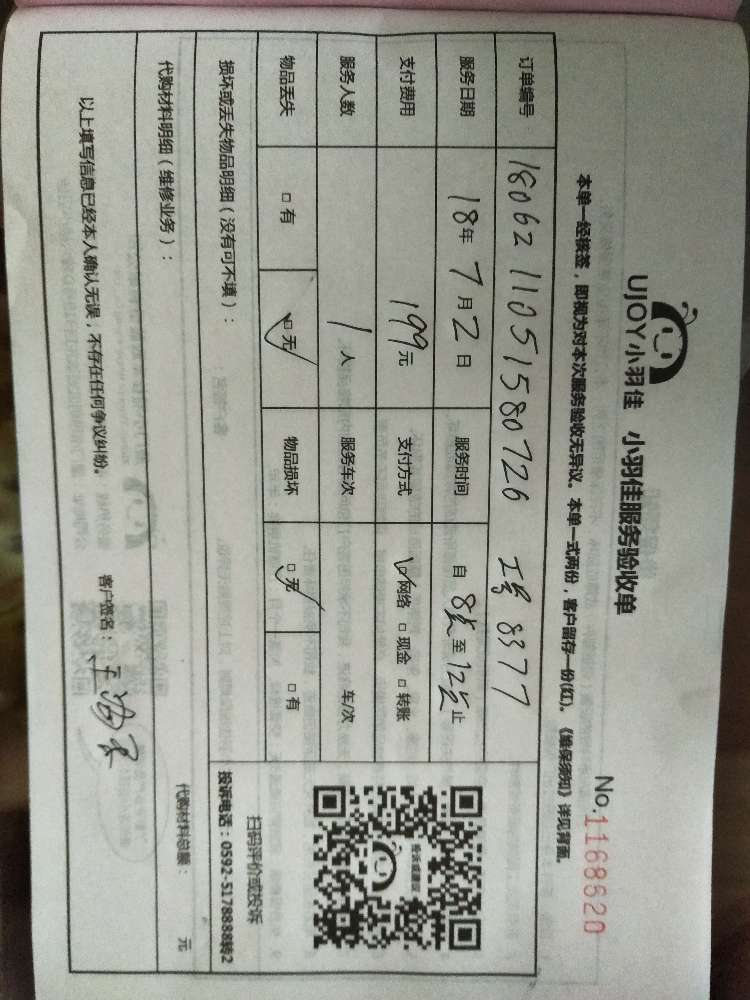 UJOY小羽佳 小羽佳服务验收单
No.1168620
本单一经核签，即视为对本次服务验收无异议。本单一式两份，客户留存一份(红)。《维保须知》详见背面。
订单编号 1806211051580726 工号8377
服务日期 18年7月2日 服务时间 自8点至12点止
支付费用 199元 支付方式 □网络 □现金 □转账
服务人数 1人 服务车次 车/次
物品丢失 □有 □无 物品损坏 □无 □有
投诉或建议
扫码评价或投诉
投诉电话：0592-5178888转2
损坏或丢失物品明细（没有可不填）：
代购材料明细（维修业务）： 代购材料总额： 元
以上填写信息已经本人确认无误，不存在任何争议纠纷。
客户签名：